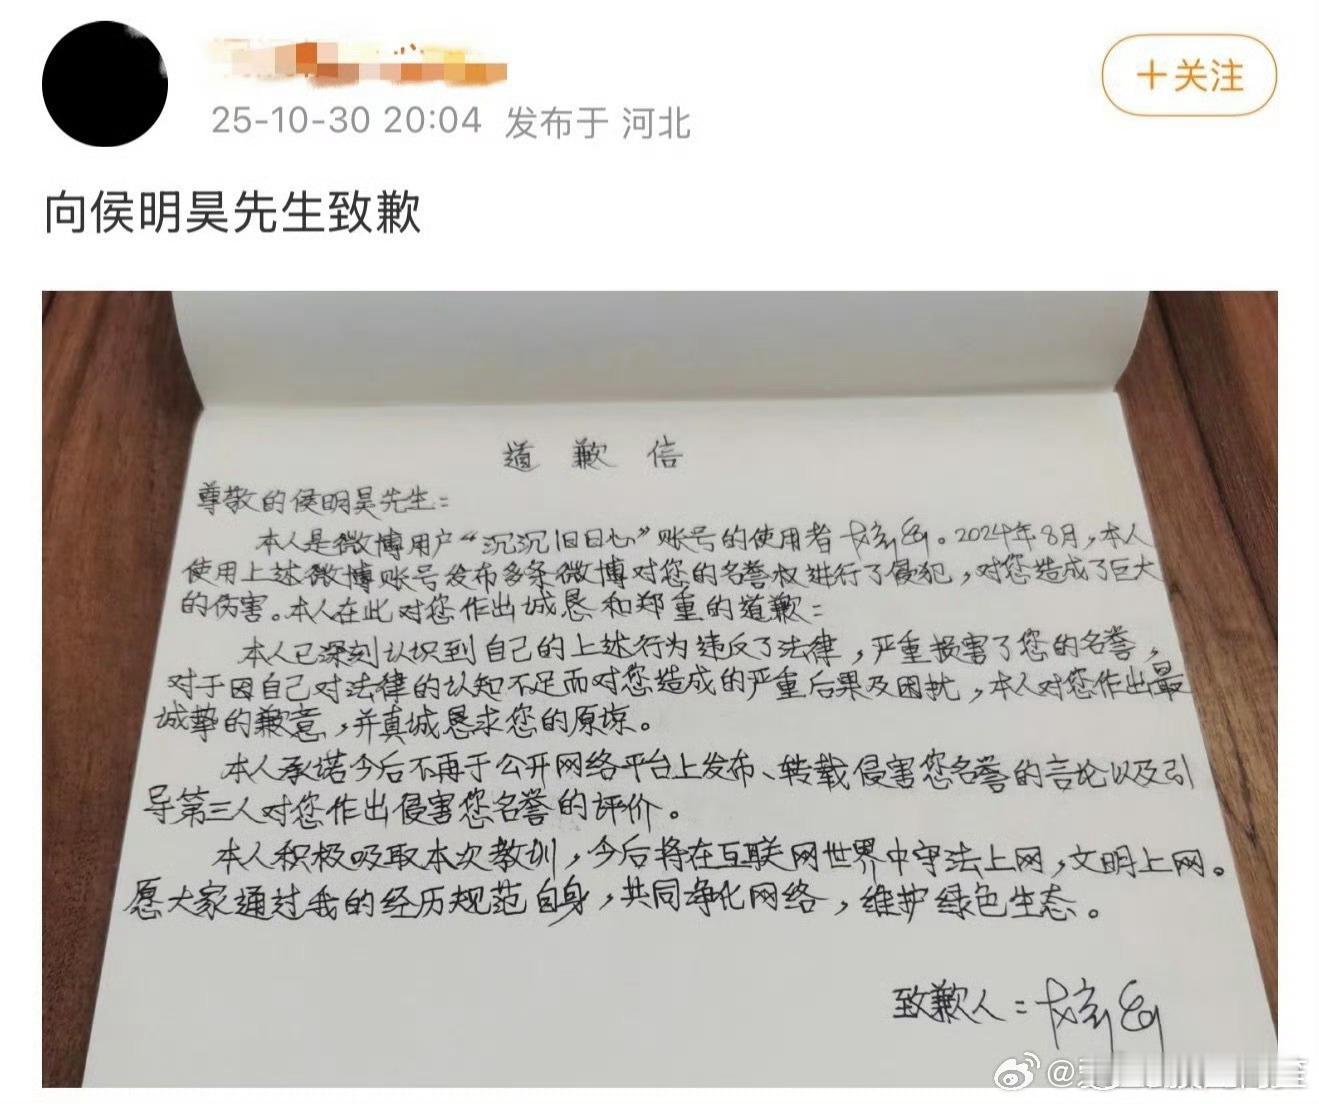 25-10-30 20:04 发布于 河北
+关注
向侯明昊先生致歉
道歉信
尊敬的侯明昊先生：
本人是微博用户“沉沉旧日心”账号的使用者。2024年8月，本人
使用上述微博账号发布多条微博对您的名誉权进行了侵犯，对您造成了巨大
的伤害。本人在此对您作出诚恳和郑重的道歉：
本人已深刻认识到自己的上述行为违反了法律，严重损害了您的名誉，
对于因自己对法律的认知不足而对您造成的严重后果及困扰，本人对您作出最
诚挚的歉意，并真诚恳求您的原谅。
本人承诺今后不再于公开网络平台上发布、转载侵害您名誉的言论以及引
导第三人对您作出侵害您名誉的评价。
本人积极吸取本次教训，今后将在互联网世界中守法上网，文明上网。
愿大家通过我的经历规范自身，共同净化网络，维护绿色生态。
致歉人：
@